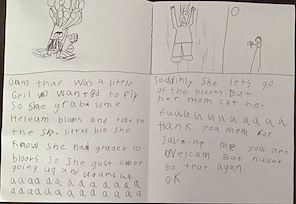 Ones ther was a little
Gril who wanted to fly
so she grabd some
Heleum bloons and toke to
the sky. little bid she
know she had grabed 10
bloons so she just cept
going up and up and up
a a a a a a a a a a a
a a a a a a a a a a a
Suddinly she lets go
of the bloons But
her mom cat her
fuuuuuuaaaah
thank you mom for
saveing me you are
welcam But never
do that agan
OK